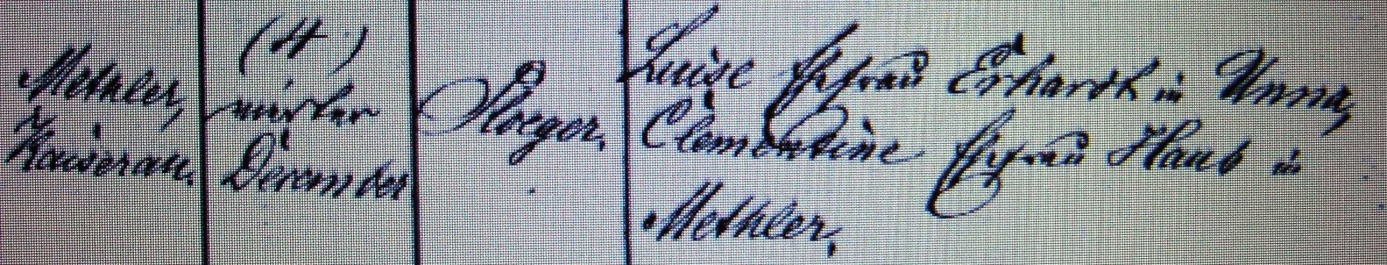 Methler,
Kaiserau.
(4)
vierter
Dezember
Ploeger.
Luise Ehefrau Erhardt in Unna,
Clementine Ehefrau Haub in
Methler,